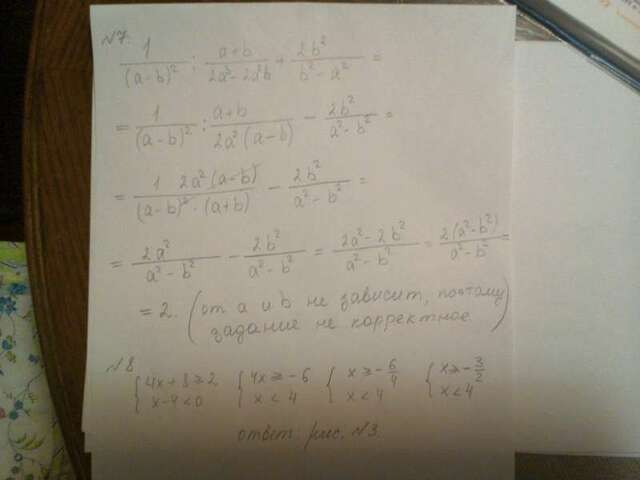 №7.
1/(a-b)² : (a+b)/(2a³-2a²b) + 2b²/(b²-a²) =
= 1/(a-b)² : (a+b)/(2a²(a-b)) - 2b²/(a²-b²) =
= 1 2a²(a-b)/((a-b)²·(a+b)) - 2b²/(a²-b²) =
= 2a²/(a²-b²) - 2b²/(a²-b²) = (2a²-2b²)/(a²-b²) = 2(a²-b²)/(a²-b²) =
= 2. (от a и b не зависит, поэтому
задание не корректное)
№8
{4x+8≥2 {4x≥-6 {x≥-6/4 {x≥-3/2
x-4<0 x<4 x<4 x<4
ответ: рис. №3.